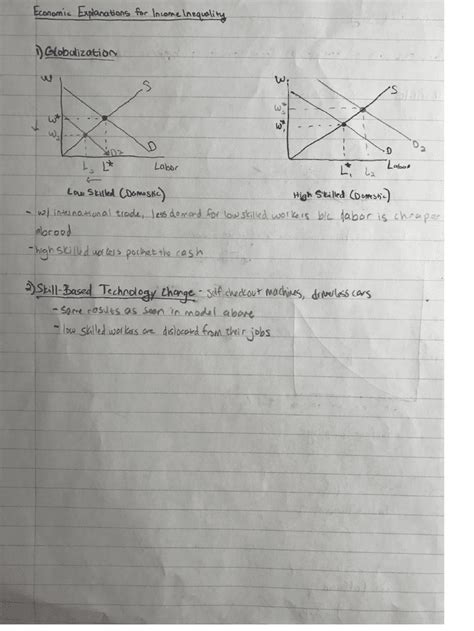 Economic Explanations for Income Inequality
1) Globalization
W
S
W*
W2
D
D2
L2 L* Labor
Low Skilled (Domestic)
W
S
W2*
W1*
D
D2
L1 L2 Labor
High Skilled (Domestic)
- w/ international trade, less demand for low skilled workers b/c labor is cheaper
abroad
- high skilled workers pocket the cash
2) Skill-Based Technology Change - self checkout machines, driverless cars
- same results as seen in model above
- low skilled workers are dislocated from their jobs